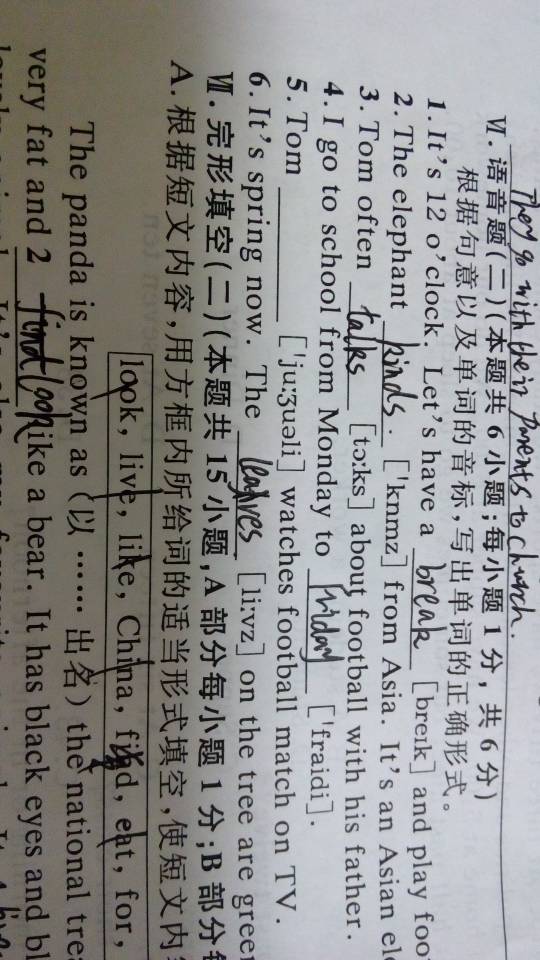 They go with their parents to church.
Ⅵ. 语音题(二)(本题共 6 小题,每小题 1 分, 共 6 分)
根据句意以及单词的音标,写出单词的正确形式。
1. It's 12 o'clock. Let's have a break [breɪk] and play foo
2. The elephant kinds. ['knmz] from Asia. It's an Asian el
3. Tom often talks [tɔːks] about football with his father.
4. I go to school from Monday to Friday ['fraidi].
5. Tom ______ ['juːʒuəli] watches football match on TV.
6. It's spring now. The leaves [liːvz] on the tree are gree
Ⅶ. 完形填空(二)(本题共 15 小题,A 部分每小题 1 分;B 部分每
A. 根据短文内容,用方框内所给词的适当形式填空,使短文内
look, live, like, China, find, eat, for,
The panda is known as (以 …… 出名) the national trea
very fat and 2 find look like a bear. It has black eyes and bl